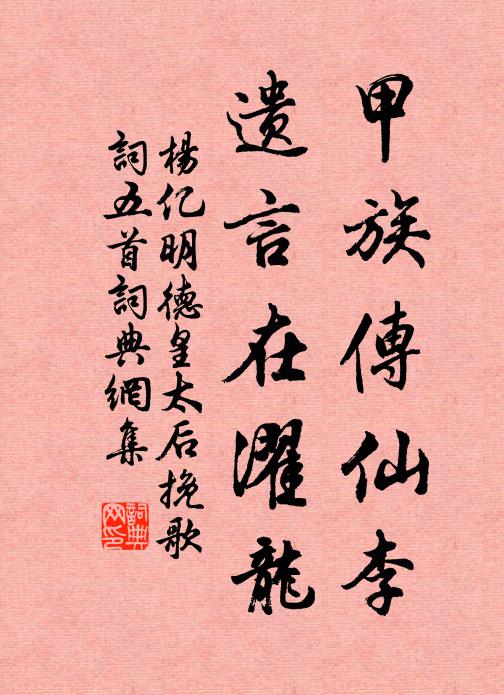 甲族傳仙李
遺言在濯龍
楊亿明德皇太后挽歌
詞五首詞典網集
詞典
网印